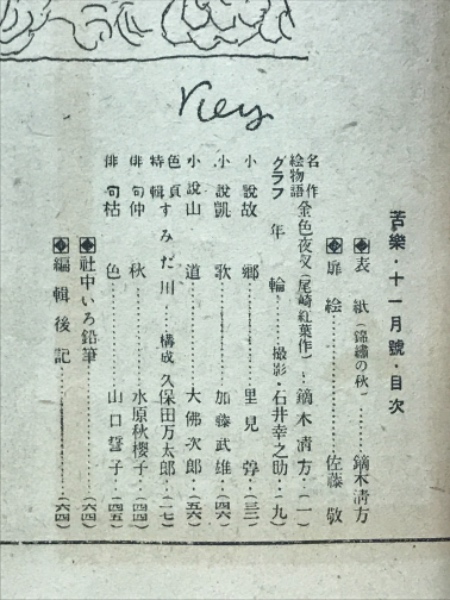 Key
苦樂・十一月號・目次
表紙（錦繡の秋）………鏑木淸方
扉繪………佐藤敬
名作繪物語 金色夜叉（尾崎紅葉作）…鏑木淸方…（一）
グラフ 年輪………撮影・石井幸之助…（九）
小說 故鄕………里見弴…（三二）
小說 凱歌………加藤武雄…（四六）
小說 山道………大佛次郎…（五六）
色頁特輯 すみだ川……構成 久保田万太郎…（一七）
俳句 仲秋………水原秋櫻子…（四四）
俳句 枯色………山口誓子…（四五）
社中いろ鉛筆………（六四）
編輯後記………（六四）